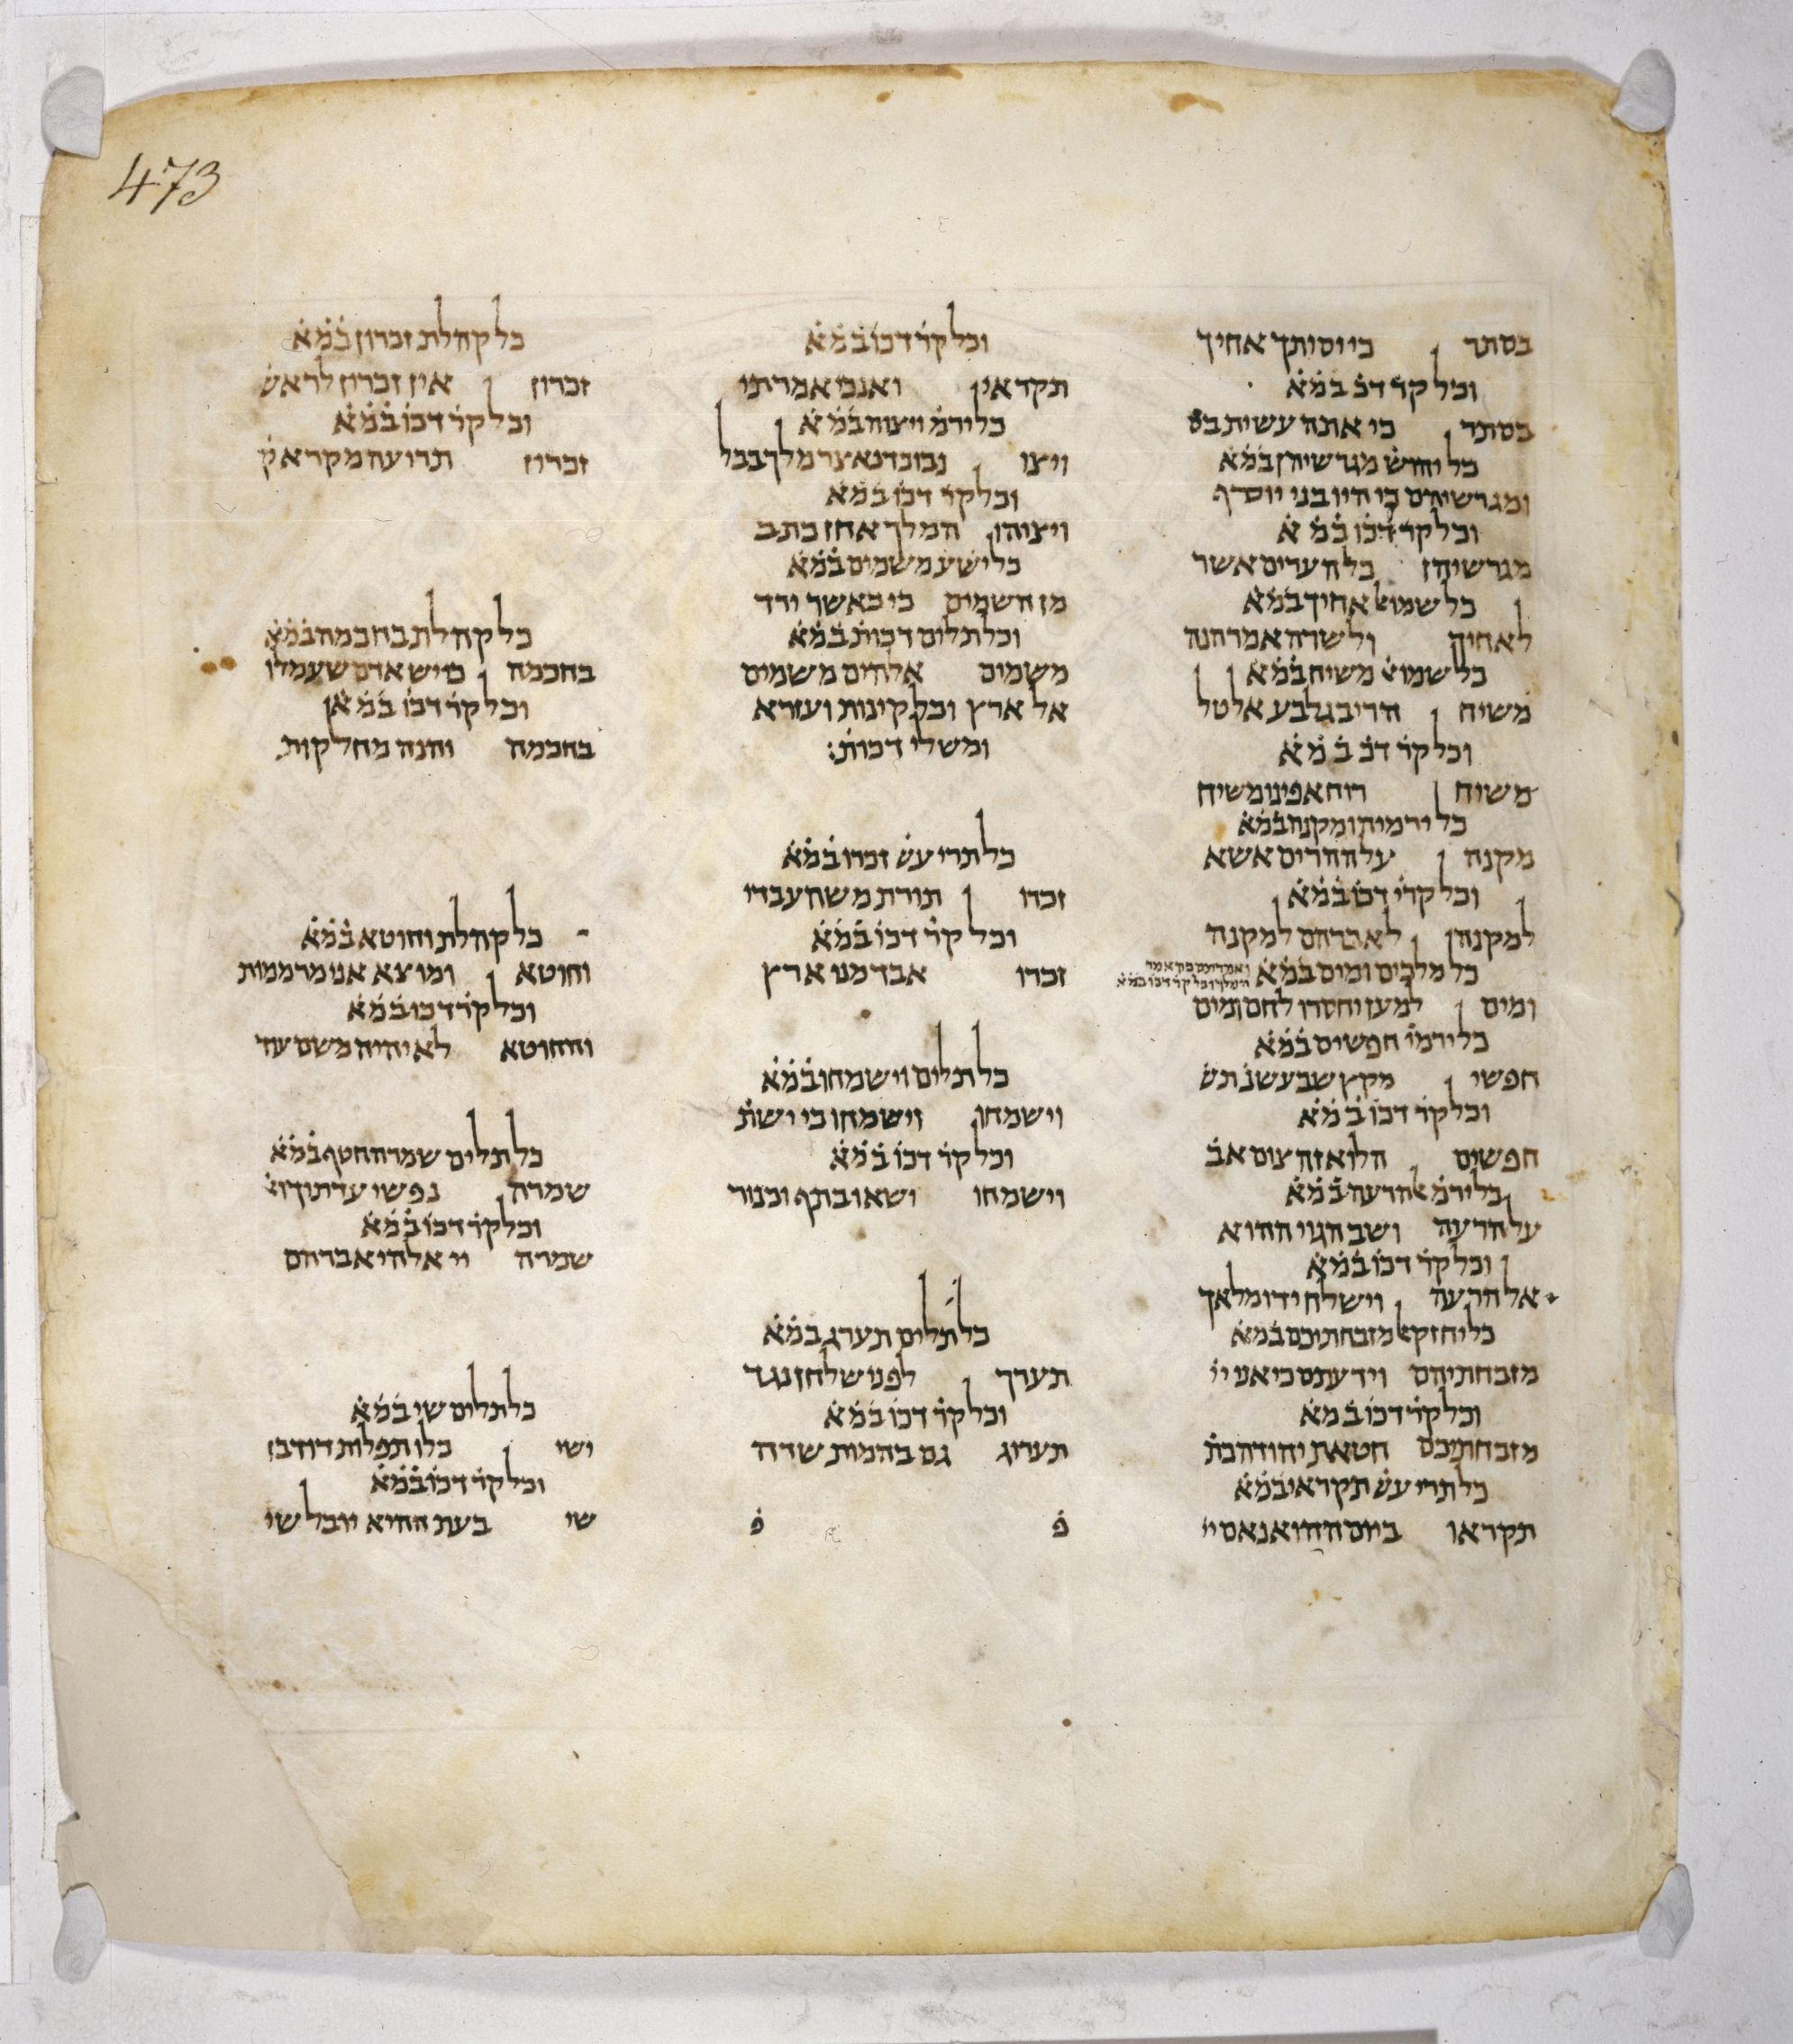 473
בסתר כי יסיתך אחיך
וכל קר דכ במא
בסתר כי אתה עשית בס
כל יהוש מגרשיהן במא
ומגרשיהם כי היו בני יוסף
וכל קר דכו במא
מגרשיהן כל הערים אשר
כל שמוא אחיך במא
לאחיך ולשרה אמר הנה
כל שמוא משיח במא
משיח הרי בגלבע אל טל
וכל קר דכ במא
משיח רוח אפינו משיח
כל ירמיה ומקנה במא
מקנה על ההרים אשא
וכל קרי דכו במא
למקנה לאברהם למקנה
כל מלכים ומים במא
ומים למען יחסרו לחם ומים
כל ירמי חפשים במא
חפשי מקץ שבע שנ תש
וכל קר דכו במא
חפשים הלוא זה צום אב
כל ירמ אל הרעה במא
על הרעה ושב הגוי ההוא
וכל קר דכו במא
אל הרעה וישלח ידו מלאך
כל יחזק מזבחתיכם במא
מזבחתיהם וידעתם כי אני יי
וכל קר דכו במא
מזבחתיכם חטאת יהודה כת
כל תרי עש תקראי במא
תקראו ביום ההוא נאם יי
וכל קר דכו במא
תקראי ואנכי אמרתי
כל ירמ ויצוה במא
ויצו נבוכדנאצר מלך בבל
וכל קר דכו במא
ויצוהו המלך אחז כתב
כל ישע משמים במא
מן השמים כי כאשר ירד
וכל תלים דכות במא
משמים אלהים משמים
אל ארץ וכל קינות ועזרא
ומשלי דכות:
כל תרי עש זכרו במא
זכרו תורת משה עבדי
וכל קר דכו במא
זכרו אבד מני ארץ
כל תלים וישמחו במא
וישמחו וישמחו כי ישת
וכל קר דכו במא
וישמחו ישאו כתף וכנור
כל תלים תערג במא
תערך לפני שלחן נגד
וכל קר דכו במא
תערוג גם בהמות שדה
פ פ
כל קהלת זכרון במא
זכרון אין זכרון לראש
וכל קר דכו במא
זכרון תרועה מקרא ק
כל קהלת בחכמה במא
בחכמה כי יש אדם שעמלו
וכל קר דכו במא
בחכמה והנה מחלקות
כל קהלת וחוטא במא
וחוטא ומוצא אני מר ממות
וכל קר דכו במא
והחוטא לא יהיה משם עוד
כל תלים שמרה חטף במא
שמרה נפשי עדתיך וא
וכל קר דכו במא
שמרה יי אלהי אברהם
כל תלים שי במא
ישי כלו תפלות דוד בן
וכל קר דכו במא
שי בעת ההיא יובל שי